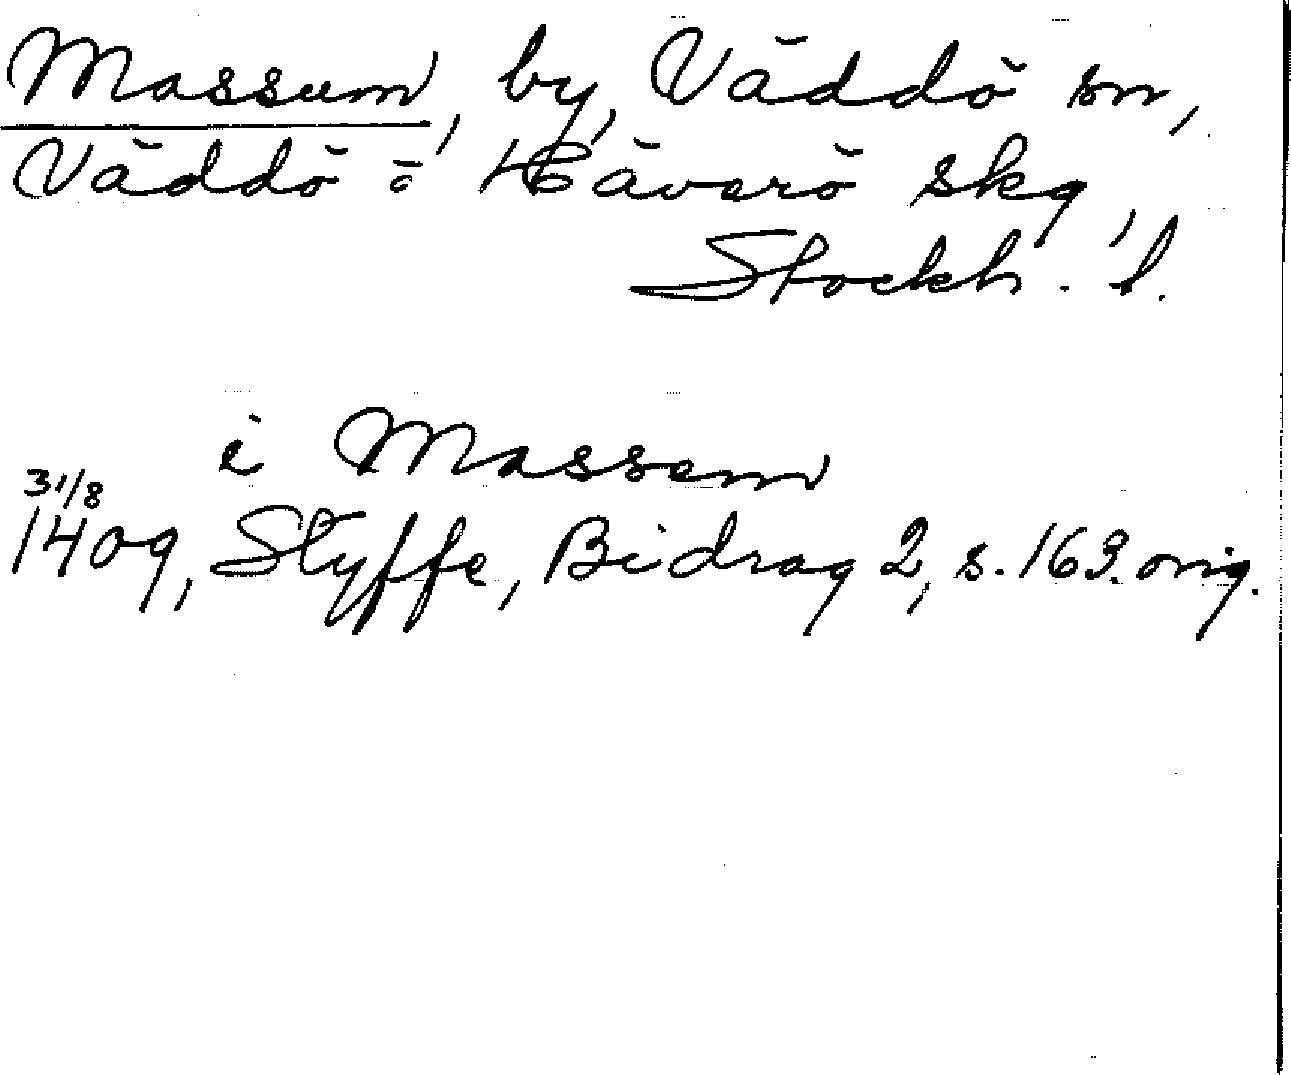 Massum, by, Väddö sn,
Väddö o Häverö skg,
Stockh. l.
i Massem
31/8
1409, Styffe, Bidrag 2, s. 163. orig.